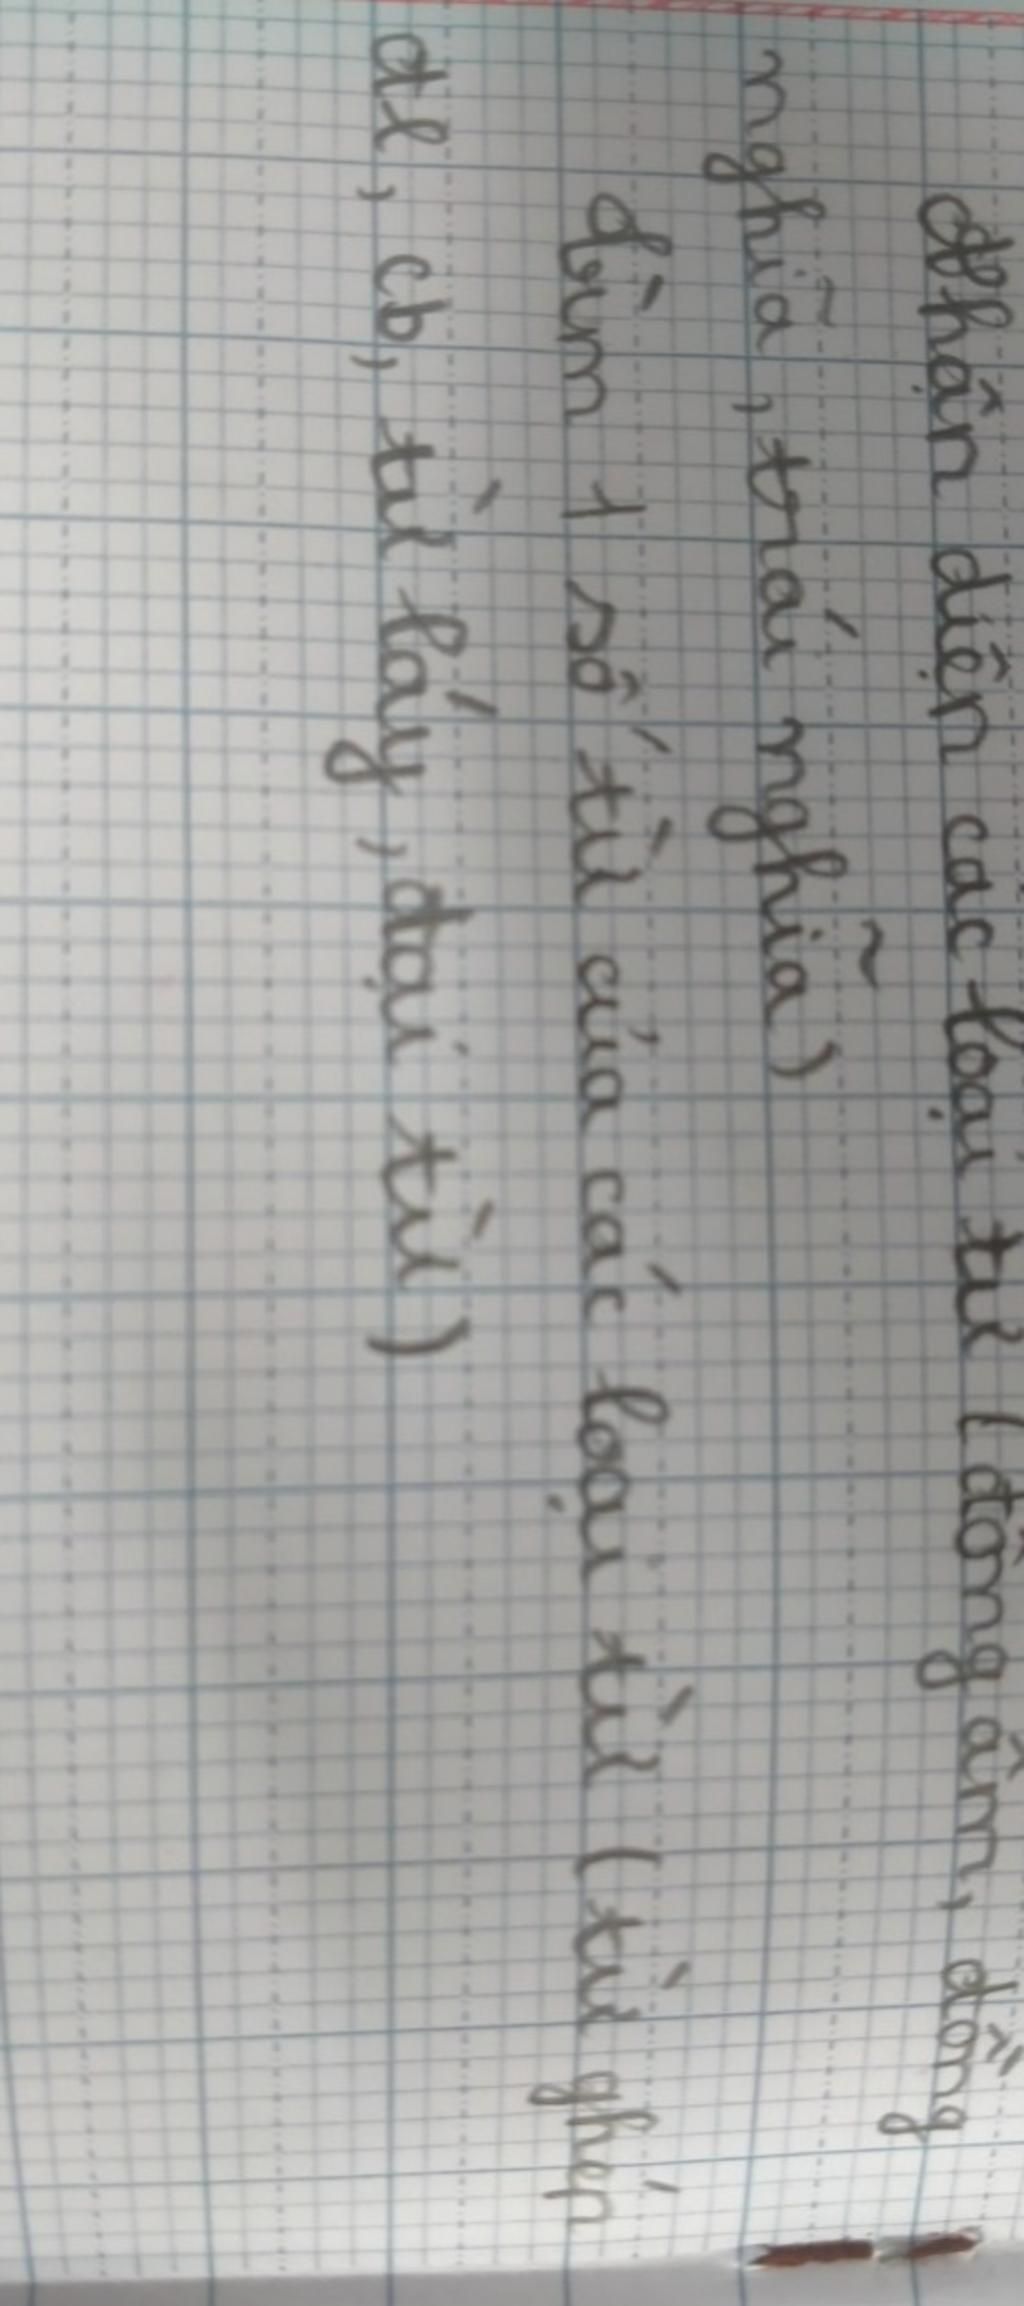 Nhận diện các loại từ (đồng âm, đồng
nghĩa, trái nghĩa)
Tìm 1 số từ của các loại từ (từ ghép
đl, cb, từ láy, đại từ)